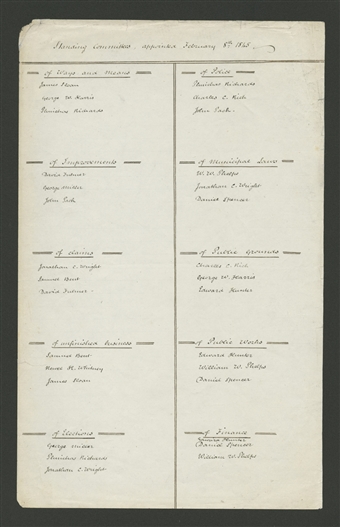 Standing Committees, appointed February 8th 1845
of Ways and Means
James Sloan
George W. Harris
Phinehas Richards
of Improvements
David Fulmer
George Miller
John Pack
of Claims
Jonathan C. Wright
Samuel Bent
David Fulmer
of unfinished business
Samuel Bent
R. Whitney
James Sloan
of Elections
George Miller
Phinehas Richards
Jonathan C. Wright
of Police
Phinehas Richards
Charles C. Rich
John Pack
of Municipal Laws
W. W. Phelps
Jonathan C. Wright
Daniel Spencer
of Public Grounds
Charles C. Rich
George W. Harris
Edward Hunter
of Public Works
Edward Hunter
William W. Phelps
Daniel Spencer
of Finance
Edward Hunter
Daniel Spencer
William W. Phelps